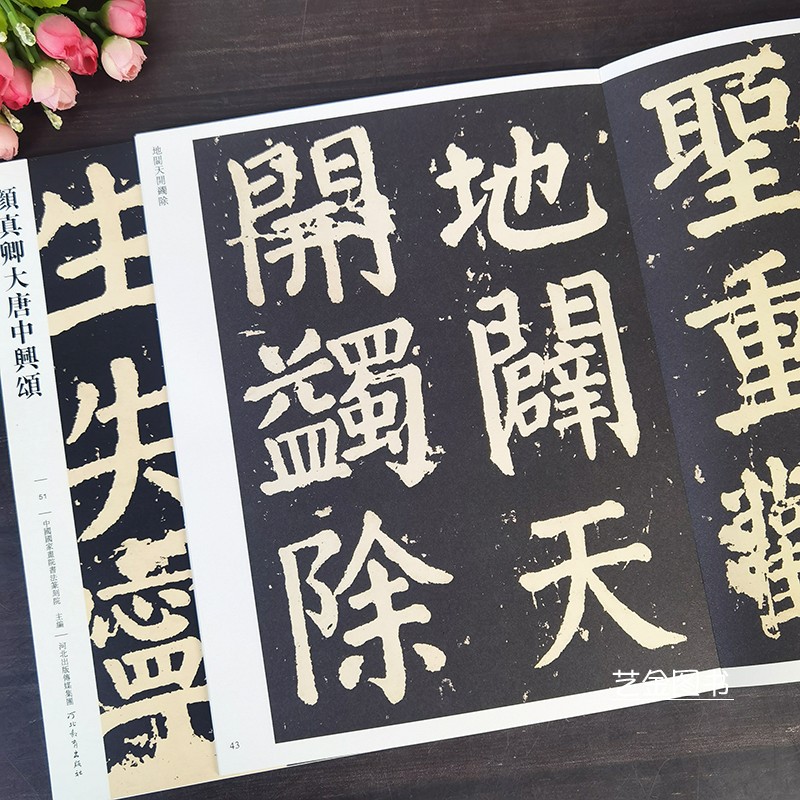 聖重
地闢天
開蠲除
地闢天開蠲除
43
生失寧
顏真卿大唐中興頌
51
中國國家畫院書法篆刻院 主編
河北出版傳媒集團 河北教育出版社
艺金图书